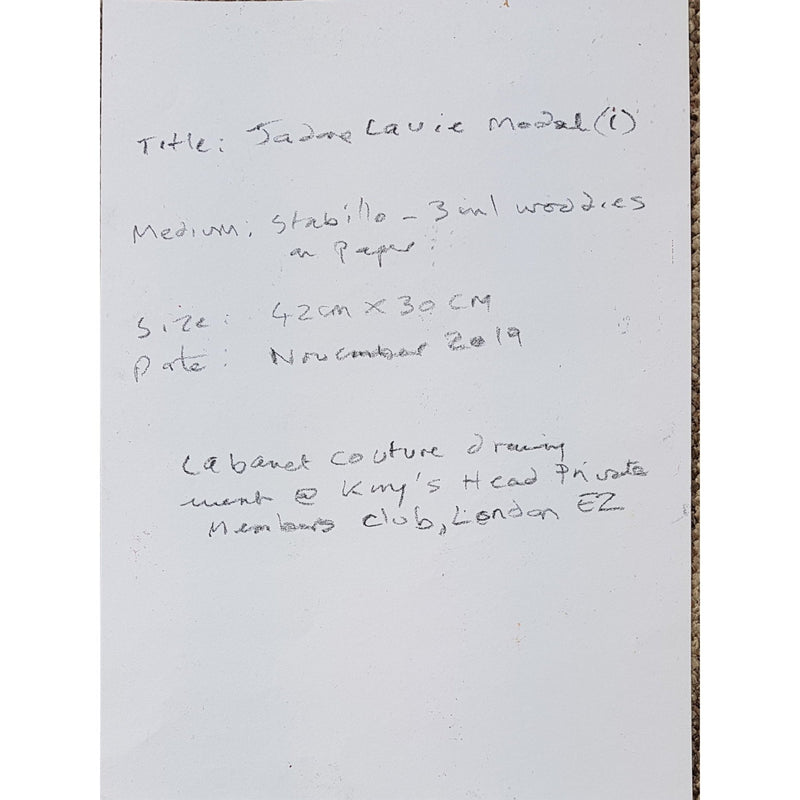 Title: Jadore Lavie Model (i)
Medium: Stabillo - 3 in 1 woodies
on Paper
Size: 42cm X 30 CM
Date: November 2019
Cabaret Couture drawing
event @ King's Head Private
Members club, London E2